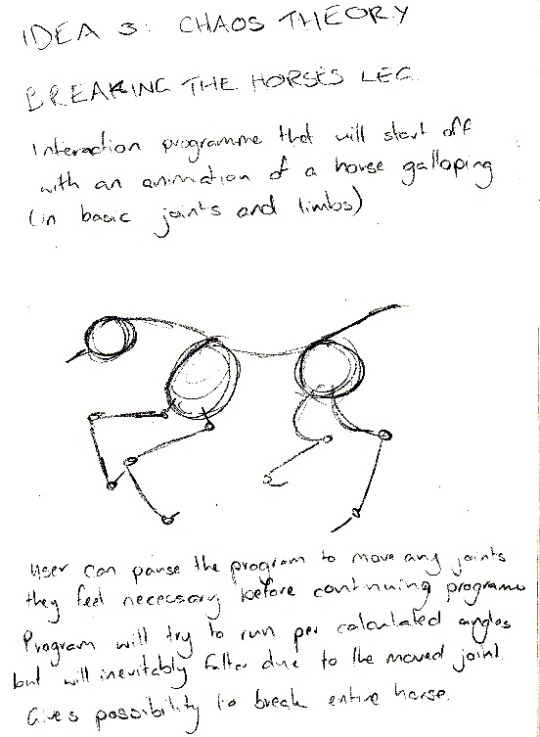 IDEA 3: CHAOS THEORY
BREAKING THE HORSES LEG.
Interaction programme that will start off
with an animation of a horse galloping
(in basic joints and limbs)
User can pause the program to move any joints
they feel necessary before continuing programe
Program will try to run per calculated angles
but will inevitably falter due to the moved joint.
Gives possibility to break entire horse.